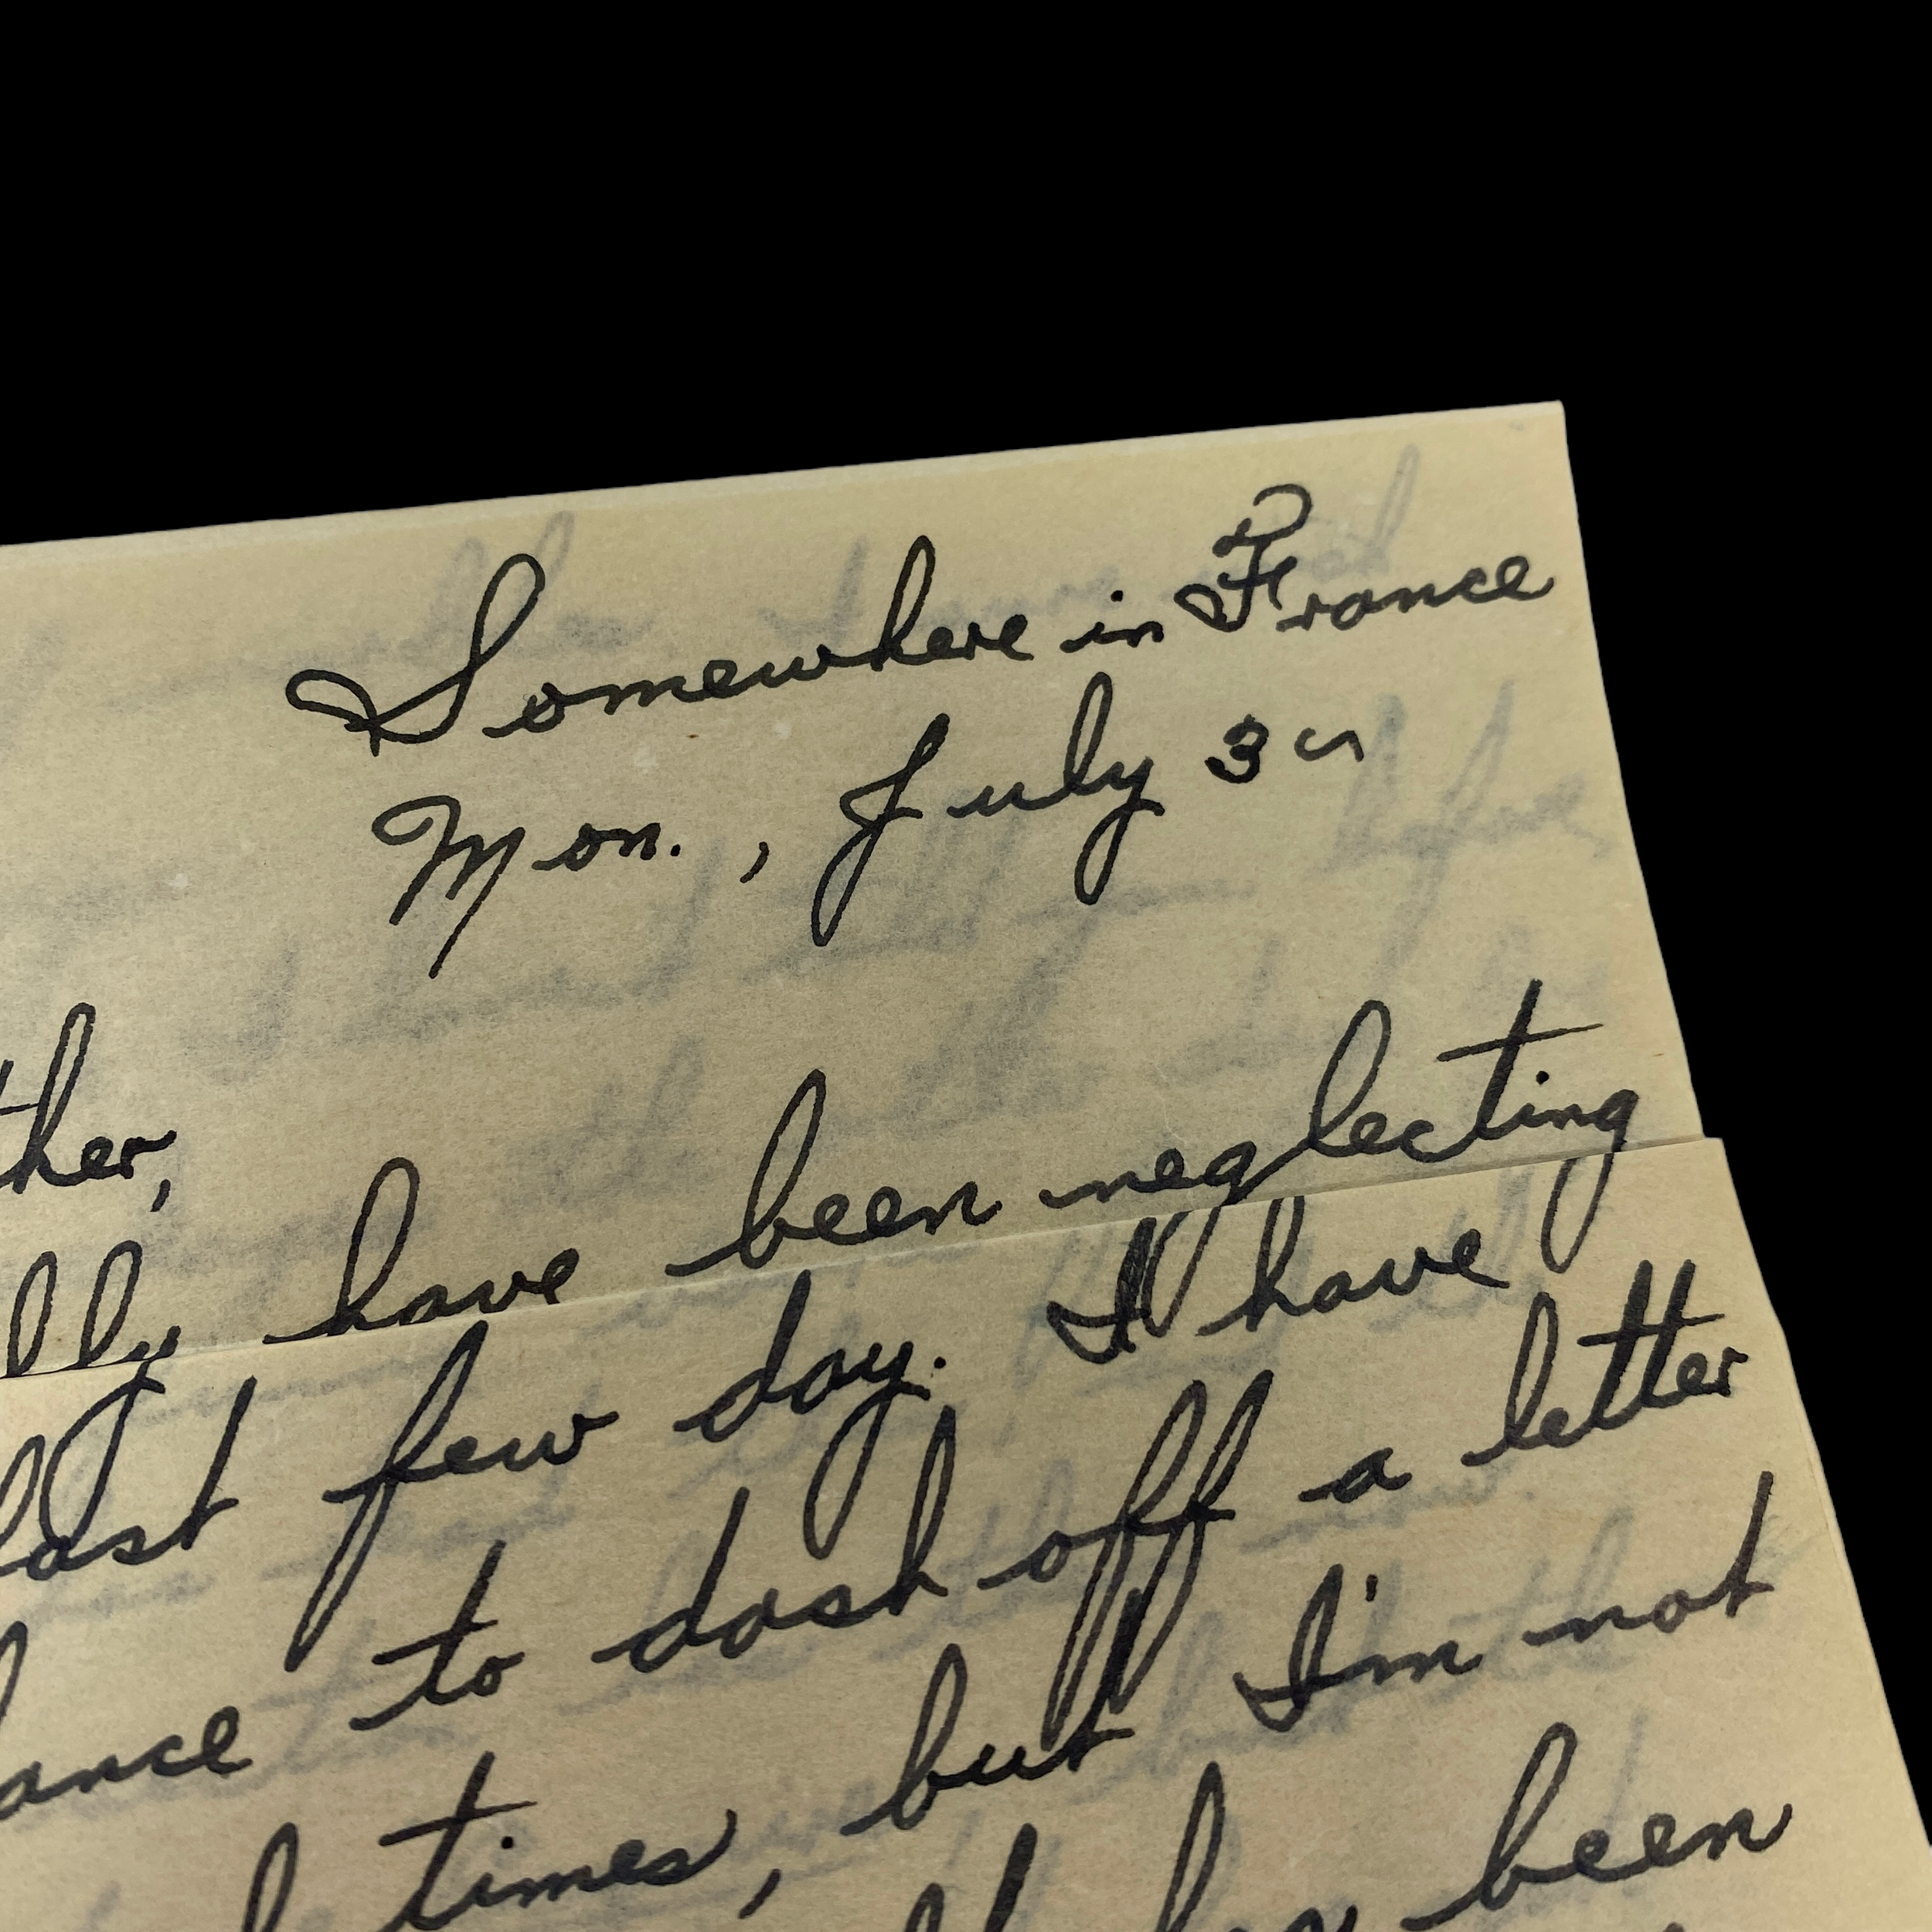 Somewhere in France
Mon., July 3
ther,
lly have been neglecting
last few day. I have
ance to dash off a letter
times, but I'm not
been